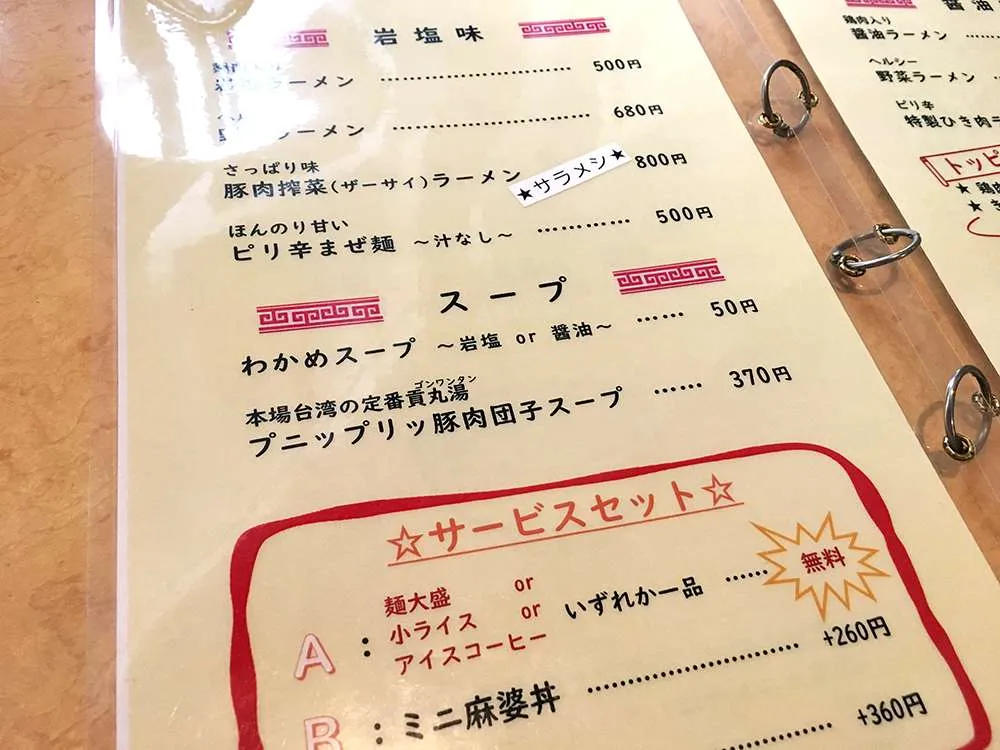 岩塩味
ラーメン ………………………… 500円
ラーメン ………………………… 680円
さっぱり味
豚肉搾菜(ザーサイ)ラーメン ★サラメシ★ 800円
ほんのり甘い
ピリ辛まぜ麺 ～汁なし～ ………… 500円
スープ
わかめスープ ～岩塩 or 醤油～ …… 50円
ゴンワンタン
本場台湾の定番貢丸湯
プニップリッ豚肉団子スープ …… 370円
☆サービスセット☆
麺大盛 or
小ライス or
アイスコーヒー
A : いずれか一品 …… 無料
+260円
B : ミニ麻婆丼 ………………………
+360円
醤油
鶏肉入り
醤油ラーメン ……
ヘルシー
野菜ラーメン
ピリ辛
特製ひき肉
トッピ
★ 鶏肉
★